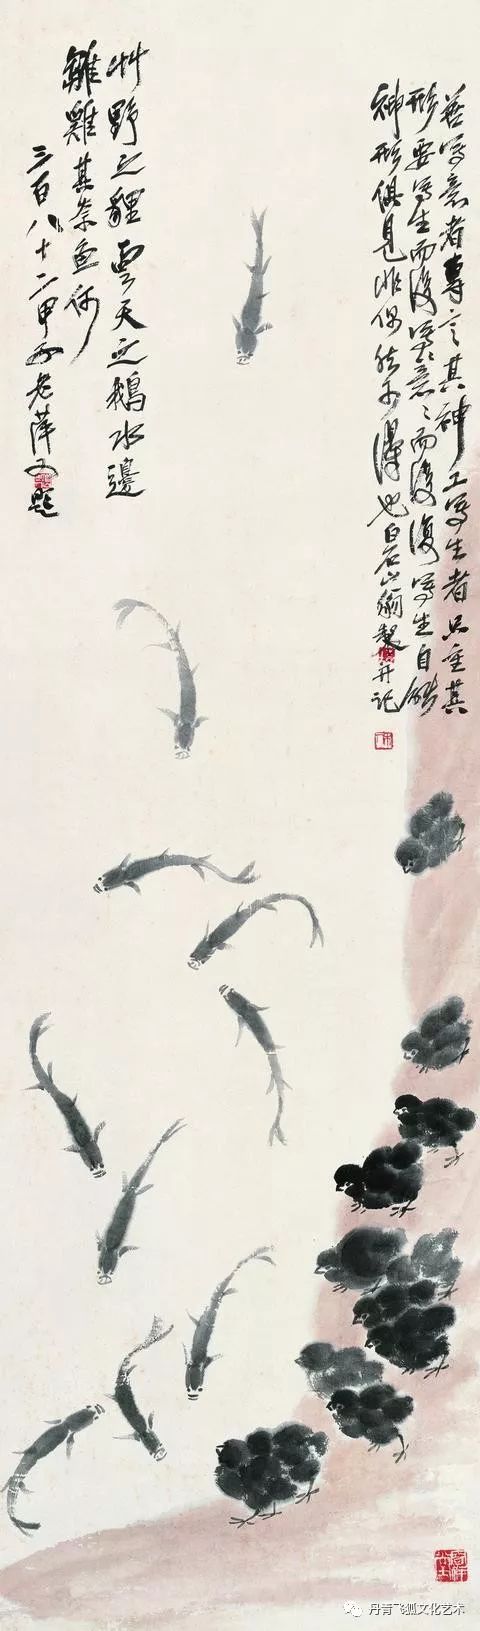 善寫意者專言其神工寫生者只重其
形要寫生而後寫〻意〻而後復寫生自能
神形俱見非偶然可得也白石山翁製并記
艸野之貍雲天之鵝水邊
雛雞其奈魚何
三百八十二甲子老萍又題
丹青飞狐文化艺术